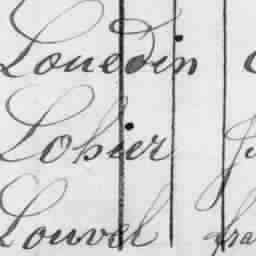 Louedin
Lohier
Louvel